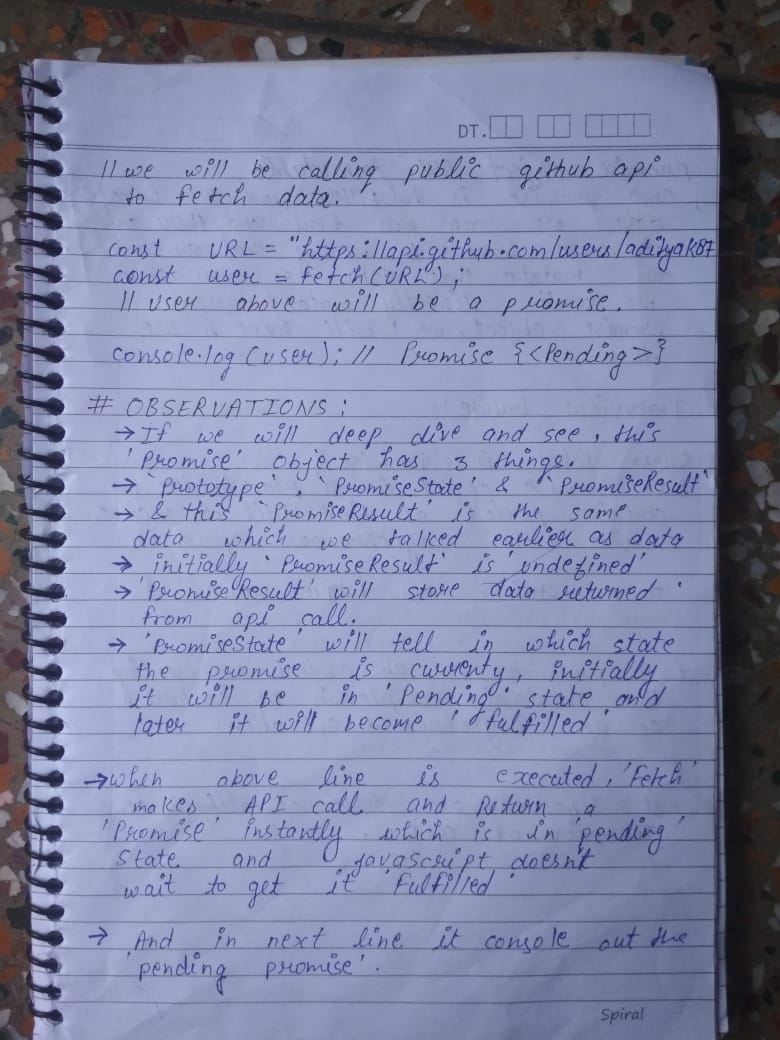 DT.
// we will be calling public github api
to fetch data.
const URL = "https://api.github.com/users/adityak87
const user = fetch(URL);
// User above will be a promise.
console.log(user); // Promise {<Pending>}
# OBSERVATIONS:
→ If we will deep dive and see, this
'Promise' object has 3 things.
→ `Prototype`, `PromiseState' & `PromiseResult`
→ & this `PromiseResult' is the same
data which we talked earlier as data
→ initially `PromiseResult' is 'undefined'
→ 'PromiseResult' will store data returned
from api call.
→ 'PromiseState' will tell in which state
the promise is currenty, initially
it will be in 'Pending' state and
later it will become 'fulfilled'
→ when above line is executed, 'Fetch'
makes API call and Return a
'Promise' instantly which is in 'pending'
State and javascript doesn't
wait to get it 'Fulfilled'
→ And in next line it console out the
'pending promise'.
Spiral